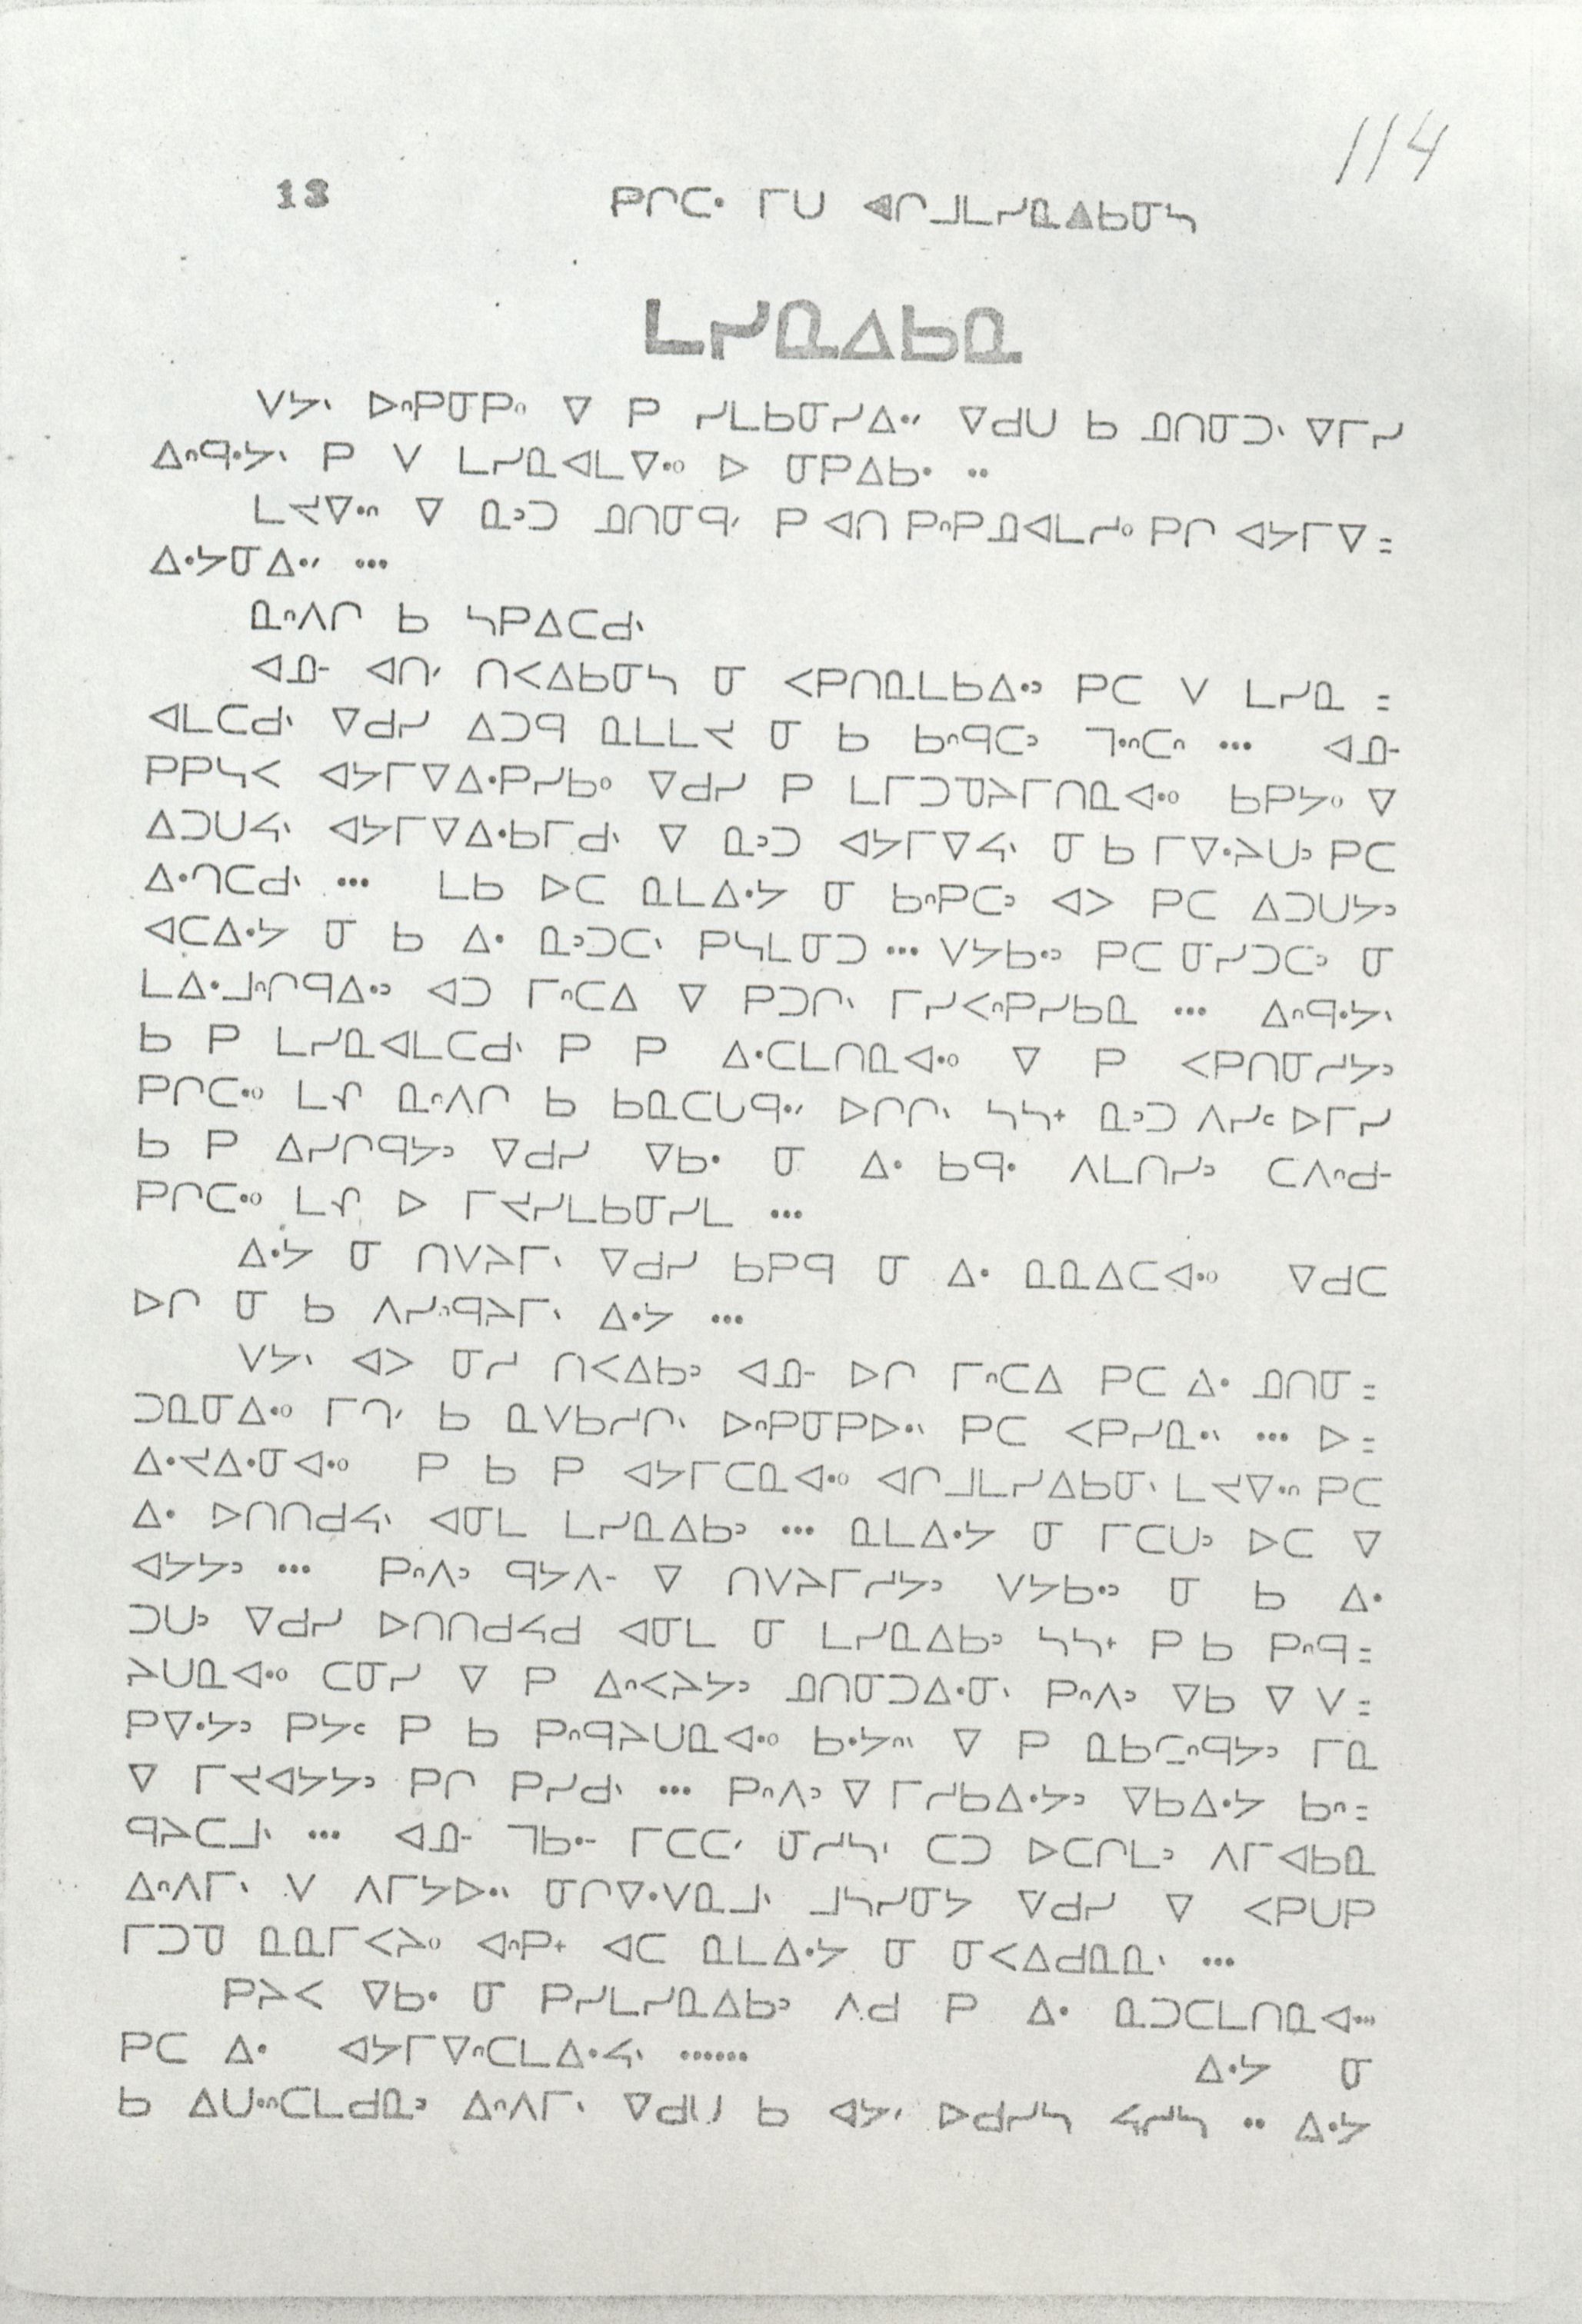 114
13 ᑭᒋᑕᐧ ᒥᑌ ᐊᒋᒧᒪᓯᓇᐃᑲᓂᓴ
ᒪᓯᓇᐃᑲᓇ
ᐯᔭᐠ ᐅᐢᑭᓂᑭᐤ ᐁ ᑭ ᓯᒪᑲᓂᓯᐃᐧᐟ ᐁᑯᑌ ᑲ ᓄᑎᓂᑐᐠ ᐁᒥᓯ
ᐃᐢᑫᐧᔭᐠ ᑭ ᐯ ᒪᓯᓇᐊᒪᐁᐧᐤ ᐅ ᓂᑭᐃᑲᐧ ..
ᒪᔦᐁᐧᐢ ᐁ ᓇᐣᑐ ᓄᑎᓂᑫᐟ ᑭ ᐊᑎ ᑭᐢᑭᓄᐊᒪᓱᐤ ᑭᒋ ᐊᔭᒥᐁ=
ᐃᐧᔭᓂᐃᐧᐟ ...
ᓇᐢᐱᒋ ᑲ ᓴᑭᐃᑕᑯᐠ
ᐊᓄᐨ ᐊᑎᐟ ᑎᐸᐃᑲᓂᓴ ᓂ ᐸᑭᑎᓇᒪᑲᐃᐧᐣ ᑭᑕ ᐯ ᒪᓯᓇ =
ᐊᒪᑕᑯᐠ ᐁᑯᓯ ᐃᑐᑫ ᓇᒪᒪᔦ ᓂ ᑲ ᑲᐢᑫᑕᐣ ᒣᐧᐢᑕᐢ ... ᐊᓄᐨ
ᑭᑭᓴᐸ ᐊᔭᒥᐁᐃᐧᑭᓯᑲᐤ ᐁᑯᓯ ᑭ ᒪᒥᑐᑀᔨᒥᑎᓇᐊᐧᐤ ᑲᑭᔭᐤ ᐁ
ᐃᑐᑌᔦᐠ ᐊᔭᒥᐁᐃᐧᑲᒥᑯᐠ ᐁ ᓇᐣᑐ ᐊᔭᒥᐁᔦᐠ ᓂ ᑲ ᒥᐁᐧᔨᑌᐣ ᑭᑕ
ᐃᐧᒋᑕᑯᐠ ... ᒪᑲ ᐅᑕ ᓇᒪᐃᐧᔭ ᓂ ᑲᐢᑭᑕᐣ ᐊᐳ ᑭᑕ ᐃᑐᑌᔭᐣ
ᐊᑕᐃᐧᔭ ᓂ ᑲ ᐃᐧ ᓇᐣᑐᑕᐠ ᑭᓴᒪᓂᑐ ... ᐯᔭᑲᐧᐣ ᑭᑕ ᓂᓯᑐᑕᐣ ᓂ
ᒪᐃᐧᒧᐢᒋᑫᐃᐧᐣ ᐊᑐ ᒥᐢᑕᐃ ᐁ ᑭᑐᒋᐠ ᒥᓯᐸᐢᑭᓯᑲᓇ ... ᐃᐢᑫᐧᔭᐠ
ᑲ ᑭ ᒪᓯᓇᐊᒪᑕᑯᐠ ᑭ ᑭ ᐃᐧᑕᒪᑎᓇᐊᐧᐤ ᐁ ᑭ ᐸᑭᑎᓂᓱᔭᐣ
ᑭᒋᑕᐧᐤ ᒪᕒᐃ ᓇᐢᐱᒋ ᑲ ᑲᓇᑕᑌᑫᐧᐟ ᐅᒋᒋᐠ ᓴᓴᐩ ᓇᐣᑐ ᐱᓯᑦ ᐅᒥᓯ
ᑲ ᑭ ᐃᓯᒋᑫᔭᐣ ᐁᑯᓯ ᐁᑲᐧ ᓂ ᐃᐧ ᑲᑫᐧ ᐱᒪᑎᓯᐣ ᑕᐱᐢᑯᐨ
ᑭᒋᑕᐧᐤ ᒪᕒᐃ ᐅ ᒥᔪᓯᒪᑲᓂᓯᒪ ...
ᐃᐧᔭ ᓂ ᑎᐯᔨᒥᐠ ᐁᑯᓯ ᑲᑭᑫ ᓂ ᐃᐧ ᓇᓇᐃᑕᐊᐧᐤ ᐁᑯᑕ
ᐅᒋ ᓂ ᑲ ᐱᓯᐢᑫᔨᒥᐠ ᐃᐧᔭ ...
ᐯᔭᐠ ᐊᐳ ᓂᓱ ᑎᐸᐃᑲᐣ ᐊᓄᐨ ᐅᒋ ᒥᐢᑕᐃ ᑭᑕ ᐃᐧ ᓄᑎᓂ=
ᑐᓇᓂᐃᐧᐤ ᒥᒋᐟ ᑲ ᓇᐯᑲᓱᒋᐠ ᐅᐢᑭᓂᑭᐅᐧᐠ ᑭᑕ ᐸᑭᓯᓇᐧᐠ ... ᐅ=
ᐃᐧᔦᐃᐧᓂᐊᐧᐤ ᑭ ᑲ ᑭ ᐊᔭᒥᑕᓇᐊᐧᐤ ᐊᒋᒧᒪᓯᐃᑲᓂᐠ ᒪᔦᐁᐧᐢ ᑭᑕ
ᐃᐧ ᐅᑎᑎᑯᔦᐠ ᐊᓂᒪ ᒪᓯᓇᐃᑲᐣ ... ᓇᒪᐃᐧᔭ ᓂ ᒥᑕᑌᐣ ᐅᑕ ᐁ
ᐊᔭᔭᐣ ... ᑭᐢᐱᐣ ᑫᔭᐱᐨ ᐁ ᑎᐯᔨᒥᓱᔭᐣ ᐯᔭᑲᐧᐣ ᓂ ᑲ ᐃᐧ
ᑐᑌᐣ ᐁᑯᓯ ᐅᑎᑎᑯᔦᑯ ᐊᓂᒪ ᓂ ᒪᓯᓇᐃᑲᐣ ᓴᓴᐩ ᑭ ᑲ ᑭᐢᑫ=
ᔨᑌᓇᐊᐧᐤ ᑕᓂᓯ ᐁ ᑭ ᐃᐢᐸᔨᔭᐣ ᓄᑎᓂᑐᐃᐧᓂᐠ ᑭᐢᐱᐣ ᐁᑲ ᐁ ᐯ=
ᑭᐁᐧᔭᐣ ᑭᔭᑦ ᑭ ᑲ ᑭᐢᑫᔨᑌᓇᐊᐧᐤ ᑲᐧᔭᐢᐠ ᐁ ᑭ ᓇᑲᑐᐢᑫᔭᐣ ᒥᓇ
ᐁ ᒥᔪᐊᔭᔭᐣ ᑭᒋ ᑭᓯᑯᐠ ... ᑭᐢᐱᐣ ᐁ ᒥᓱᑲᐃᐧᔭᐣ ᐁᑲᐃᐧᔭ ᑲᐢ=
ᑫᔨᑕᒧᐠ ... ᐊᓄᐨ ᒣᑲᐧᐨ ᒥᑕᑕᐟ ᓂᓱᓴᐠ ᑕᑐ ᐅᑕᒋᒪᐣ ᐱᒥᐊᑲᓇ
ᐃᐢᐱᒥᐠ ᐯ ᐱᒥᔭᐅᐧᐠ ᓂᒋᐁᐧᐯᓇᒧᐠ ᒧᓴᓯᓂᔭ ᐁᑯᓯ ᐁ ᐸᑭᑌᑭ
ᒥᑐᑀ ᓇᓇᒥᐸᔨᐤ ᐊᐢᑭᐩ ᐊᑕ ᓇᒪᐃᐧᔭ ᓂ ᓂᐸᐃᑯᓇᓇᐠ ...
ᑭᔨᐸ ᐁᑲᐧ ᓂ ᑭᓯᒪᓯᓇᐃᑲᐣ ᐱᑯ ᑭ ᐃᐧ ᓇᑐᑕᒪᑎᓇᐊᐧᐤ
ᑭᑕ ᐃᐧ ᐊᔭᒥᐁᐢᑕᒪᐃᐧᔦᐠ ......
ᐃᐧᔭ ᓂ
ᑲ ᐃᑌᐧᐢᑕᒪᑯᓇᐣ ᐃᐢᐱᒥᐠ ᐁᑯᑌ ᑲ ᐊᔭᐟ ᐅᑯᓯᓴ ᔦᓱᓴ .. ᐃᐧᔭ